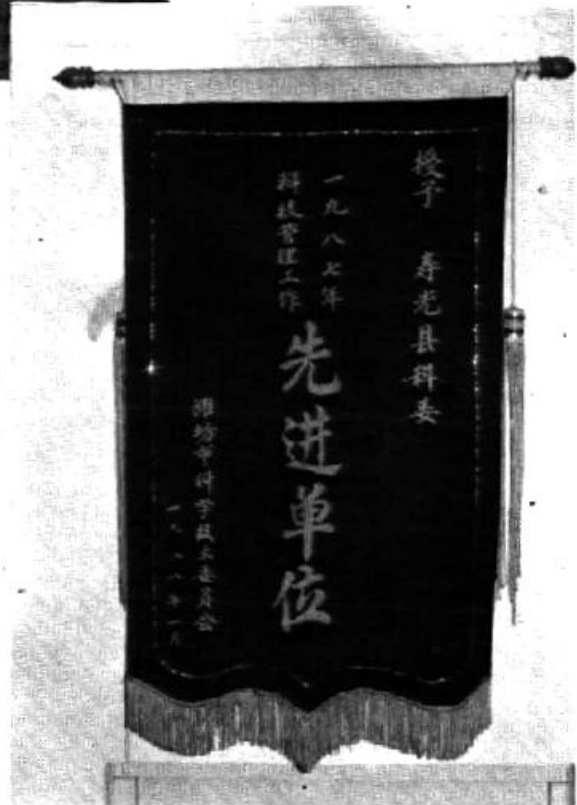 授予 寿光县科委
一九八七年
科技管理工作
先进单位
潍坊市科学技术委员会
一九八八年一月